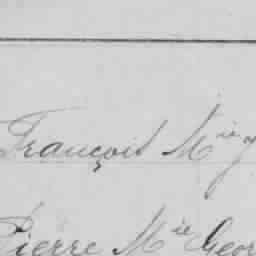 François Mie
Pierre Mie Geor